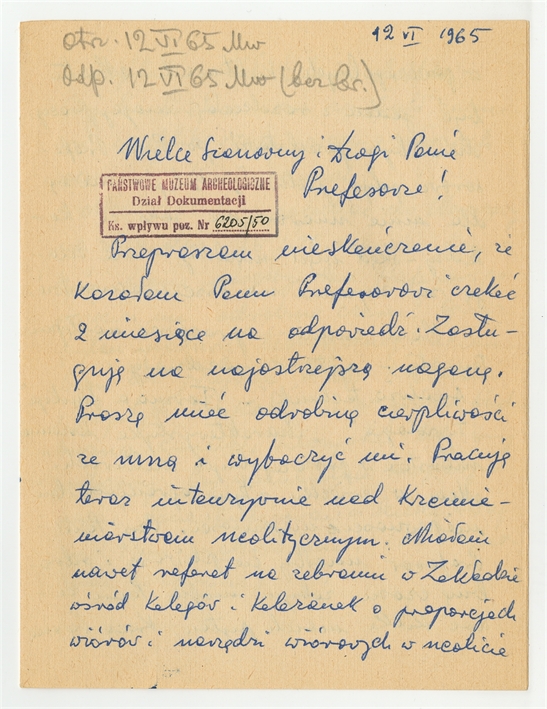 otrz. 12 VI 65 Mw
12 VI 1965
odp. 12 VI 65 Mw (bez br.)
Wielce Szanowny i Drogi Panie
Profesorze!
PAŃSTWOWE MUZEUM ARCHEOLOGICZNE
Dział Dokumentacji
Ks. wpływu poz. Nr 6205/50
Przepraszam nieskończenie, że
kazałam Panu Profesorowi czekać
2 miesiące na odpowiedź. Zasłu-
guję na najostrzejszą naganę.
Proszę mieć odrobinę cierpliwości
ze mną i wybaczyć mi. Pracuję
teraz intenzywnie nad Krzemie-
niarstwem neolitycznym. Miałam
nawet referat na zebraniu w Zakładzie
wśród Kolegów i Koleżanek o proporcjach
wiórów i narzędzi wiórowych w neolicie